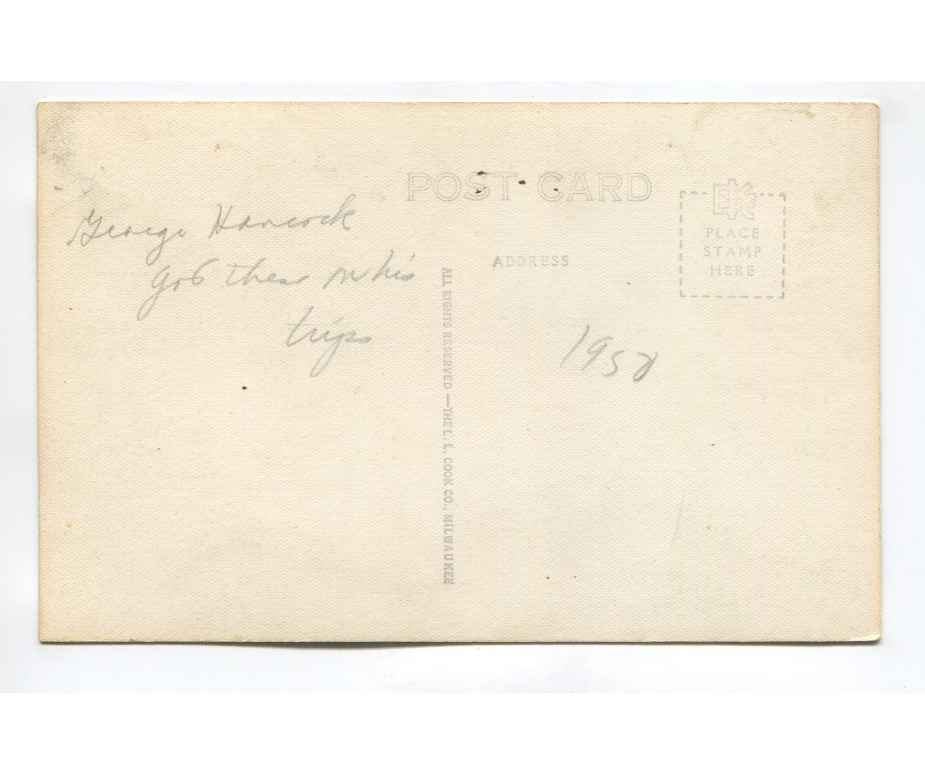 POST CARD
George Hancock
got these on his
trips
ALL RIGHTS RESERVED — THE L. L. COOK CO., MILWAUKEE
ADDRESS
EKC
PLACE
STAMP
HERE
1958